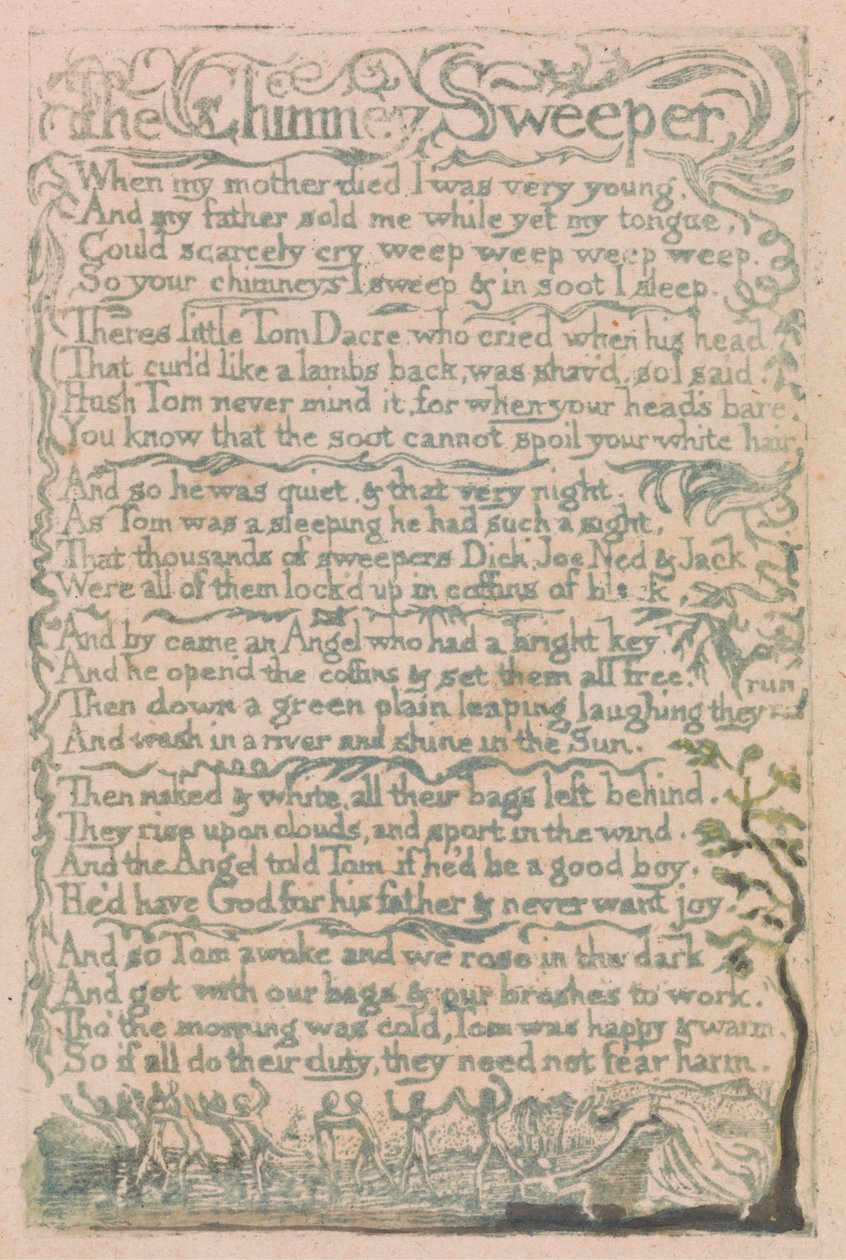 The Chimney Sweeper
When my mother died I was very young,
And my father sold me while yet my tongue,
Could scarcely cry weep weep weep weep.
So your chimneys I sweep & in soot I sleep.
Theres little Tom Dacre, who cried when his head
That curl'd like a lambs back, was shav'd, so I said.
Hush Tom never mind it, for when your head's bare,
You know that the soot cannot spoil your white hair
And so he was quiet, & that very night.
As Tom was a sleeping he had such a sight,
That thousands of sweepers Dick, Joe Ned & Jack
Were all of them lock'd up in coffins of black,
And by came an Angel who had a bright key
And he open'd the coffins & set them all free.
Then down a green plain leaping laughing they run
And wash in a river and shine in the Sun.
Then naked & white, all their bags left behind.
They rise upon clouds, and sport in the wind.
And the Angel told Tom if he'd be a good boy,
He'd have God for his father & never want joy.
And so Tom awoke and we rose in the dark
And got with our bags & our brushes to work.
Tho' the morning was cold, Tom was happy & warm.
So if all do their duty, they need not fear harm.